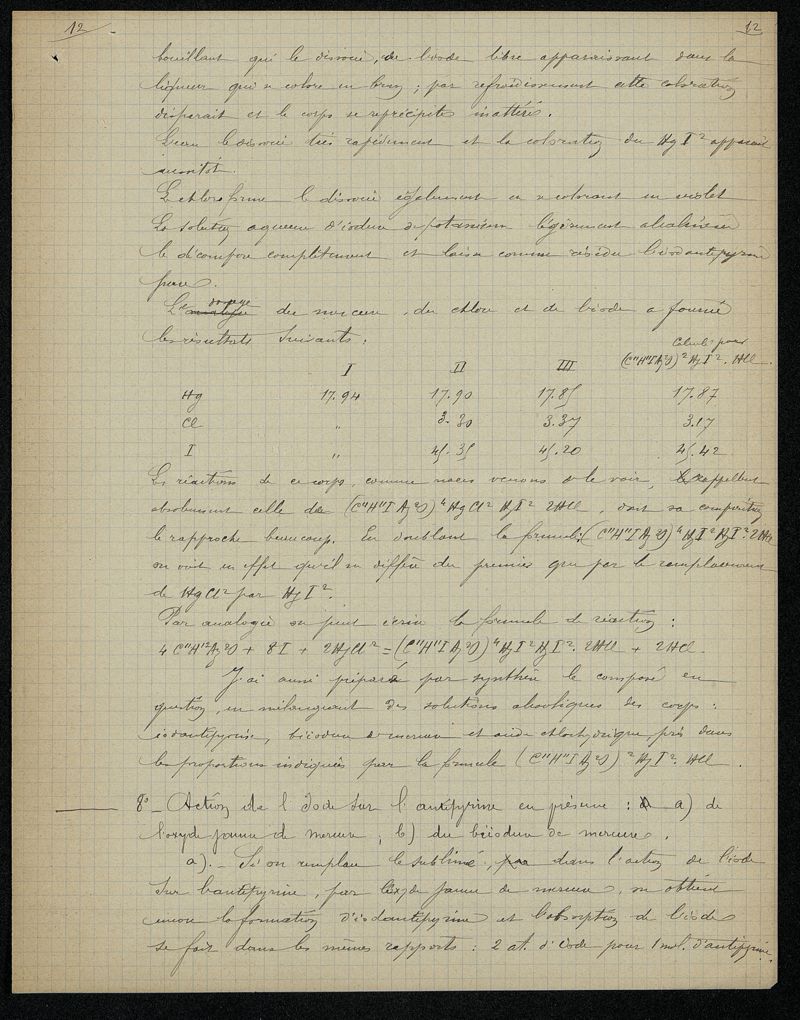 12 12
bouillant qui le dissocie, de l'iode libre apparaissant dans la
liqueur qui se colore en brun ; par refroidissement cette coloration
disparait et le corps se reprécipite inaltéré.
L'eau le dissocie très rapidement et la coloration du HgI² apparait
aussitôt.
Le chloroforme le dissocie également en se colorant en violet
La solution aqueuse d'iodure de potassium légèrement alcalinisée
le décompose complètement et laisse comme résidu l'iodantipyrine
pure.
Le dosage du mercure, du chlore et de l'iode a fourni
les résultats suivants :
Calculé pour
I II III (C¹¹H¹¹IAz²O)²HgI². HCl.
Hg 17.94 17.90 17.85 17.87
Cl " 3.30 3.37 3.17
I " 45.35 45.20 45.42
Les réactions de ce corps, comme nous venons de le voir, rappellent
absolument celle de (C¹¹H¹¹IAz²O)⁴HgCl² HgI² 2HCl, dont sa composition
le rapproche beaucoup. En doublant la formule : (C¹¹H¹¹IAz²O)⁴HgI²HgI². 2HCl
on voit en effet qu'il ne diffère du premier que par le remplacement
de HgCl² par HgI².
Par analogie on peut écrire la formule de réaction :
4 C¹¹H¹²Az²O + 8I + 2HgCl² = (C¹¹H¹¹IAz²O)⁴HgI²HgI². 2HCl + 2HCl.
J'ai aussi préparé par synthèse le composé en
question, en mélangeant des solutions alcooliques des corps :
iodantipyrine, biiodure de mercure et acide chlorhydrique, pris dans
les proportions indiquées par la formule (C¹¹H¹¹IAz²O)²HgI². HCl.
8° - Action de l'Iode sur l'antipyrine en présence : a) de
l'oxyde jaune de mercure ; b) du biiodure de mercure.
a). - Si on remplace le sublimé, dans l'action de l'iode
sur l'antipyrine, par l'oxyde jaune de mercure, on obtient
encore la formation d'iodantipyrine et l'absorption de l'iode
se fait dans les mêmes rapports : 2 at. d'iode pour 1 mol. d'antipyrine.